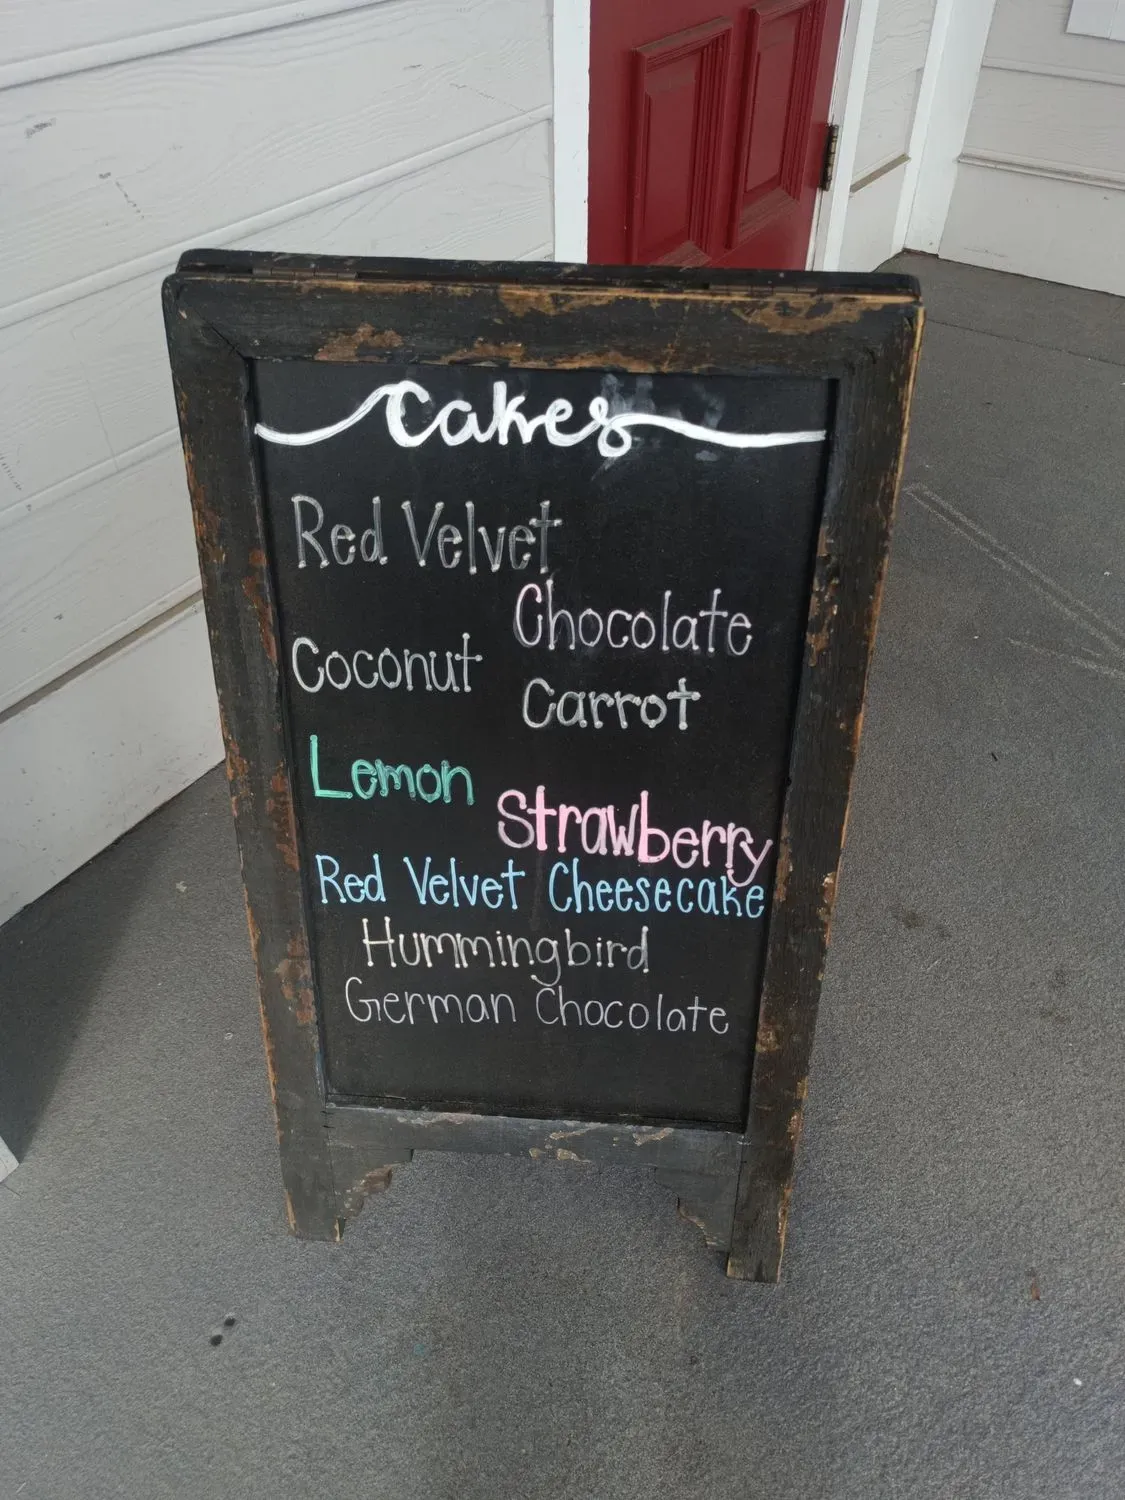 Cakes
Red Velvet
Chocolate
Coconut
Carrot
Lemon
Strawberry
Red Velvet Cheesecake
Hummingbird
German Chocolate